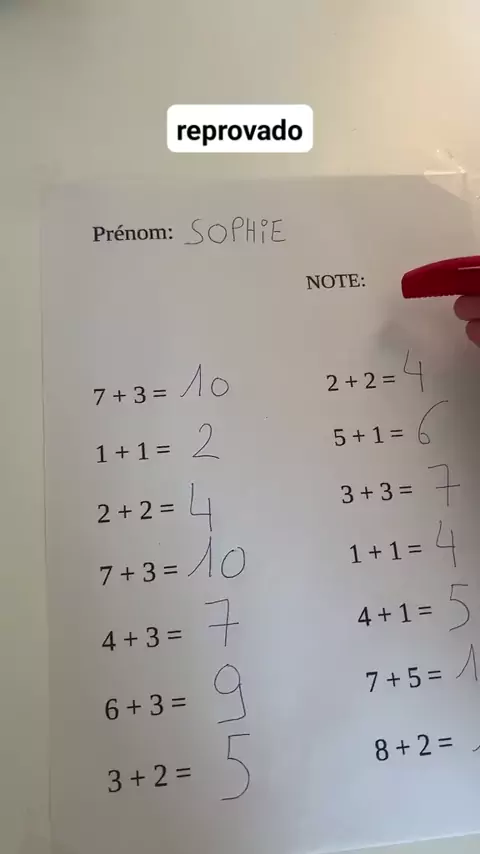 reprovado
Prénom: SOPHiE
NOTE:
7 + 3 = 10
1 + 1 = 2
2 + 2 = 4
7 + 3 = 10
4 + 3 = 7
6 + 3 = 9
3 + 2 = 5
2 + 2 = 4
5 + 1 = 6
3 + 3 = 7
1 + 1 = 4
4 + 1 = 5
7 + 5 = 1
8 + 2 =